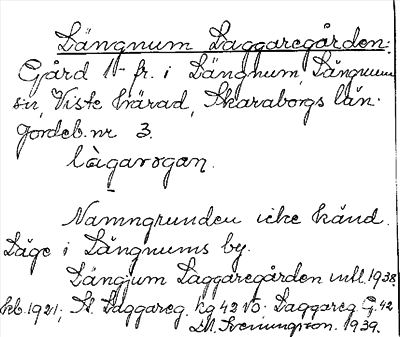 Längnum Laggaregården:
Gård 1 fr. i Längnum, Längnum
sn, Viste härad, Skaraborgs län.
Jordeb. nr 3.
làgarogan.
Namngrunden icke känd.
Läge i Längnums by.
Längjum Laggaregården 1938.
kb. 1921; St. Laggareg. kg 42 Laggareg. G. 42
1939.